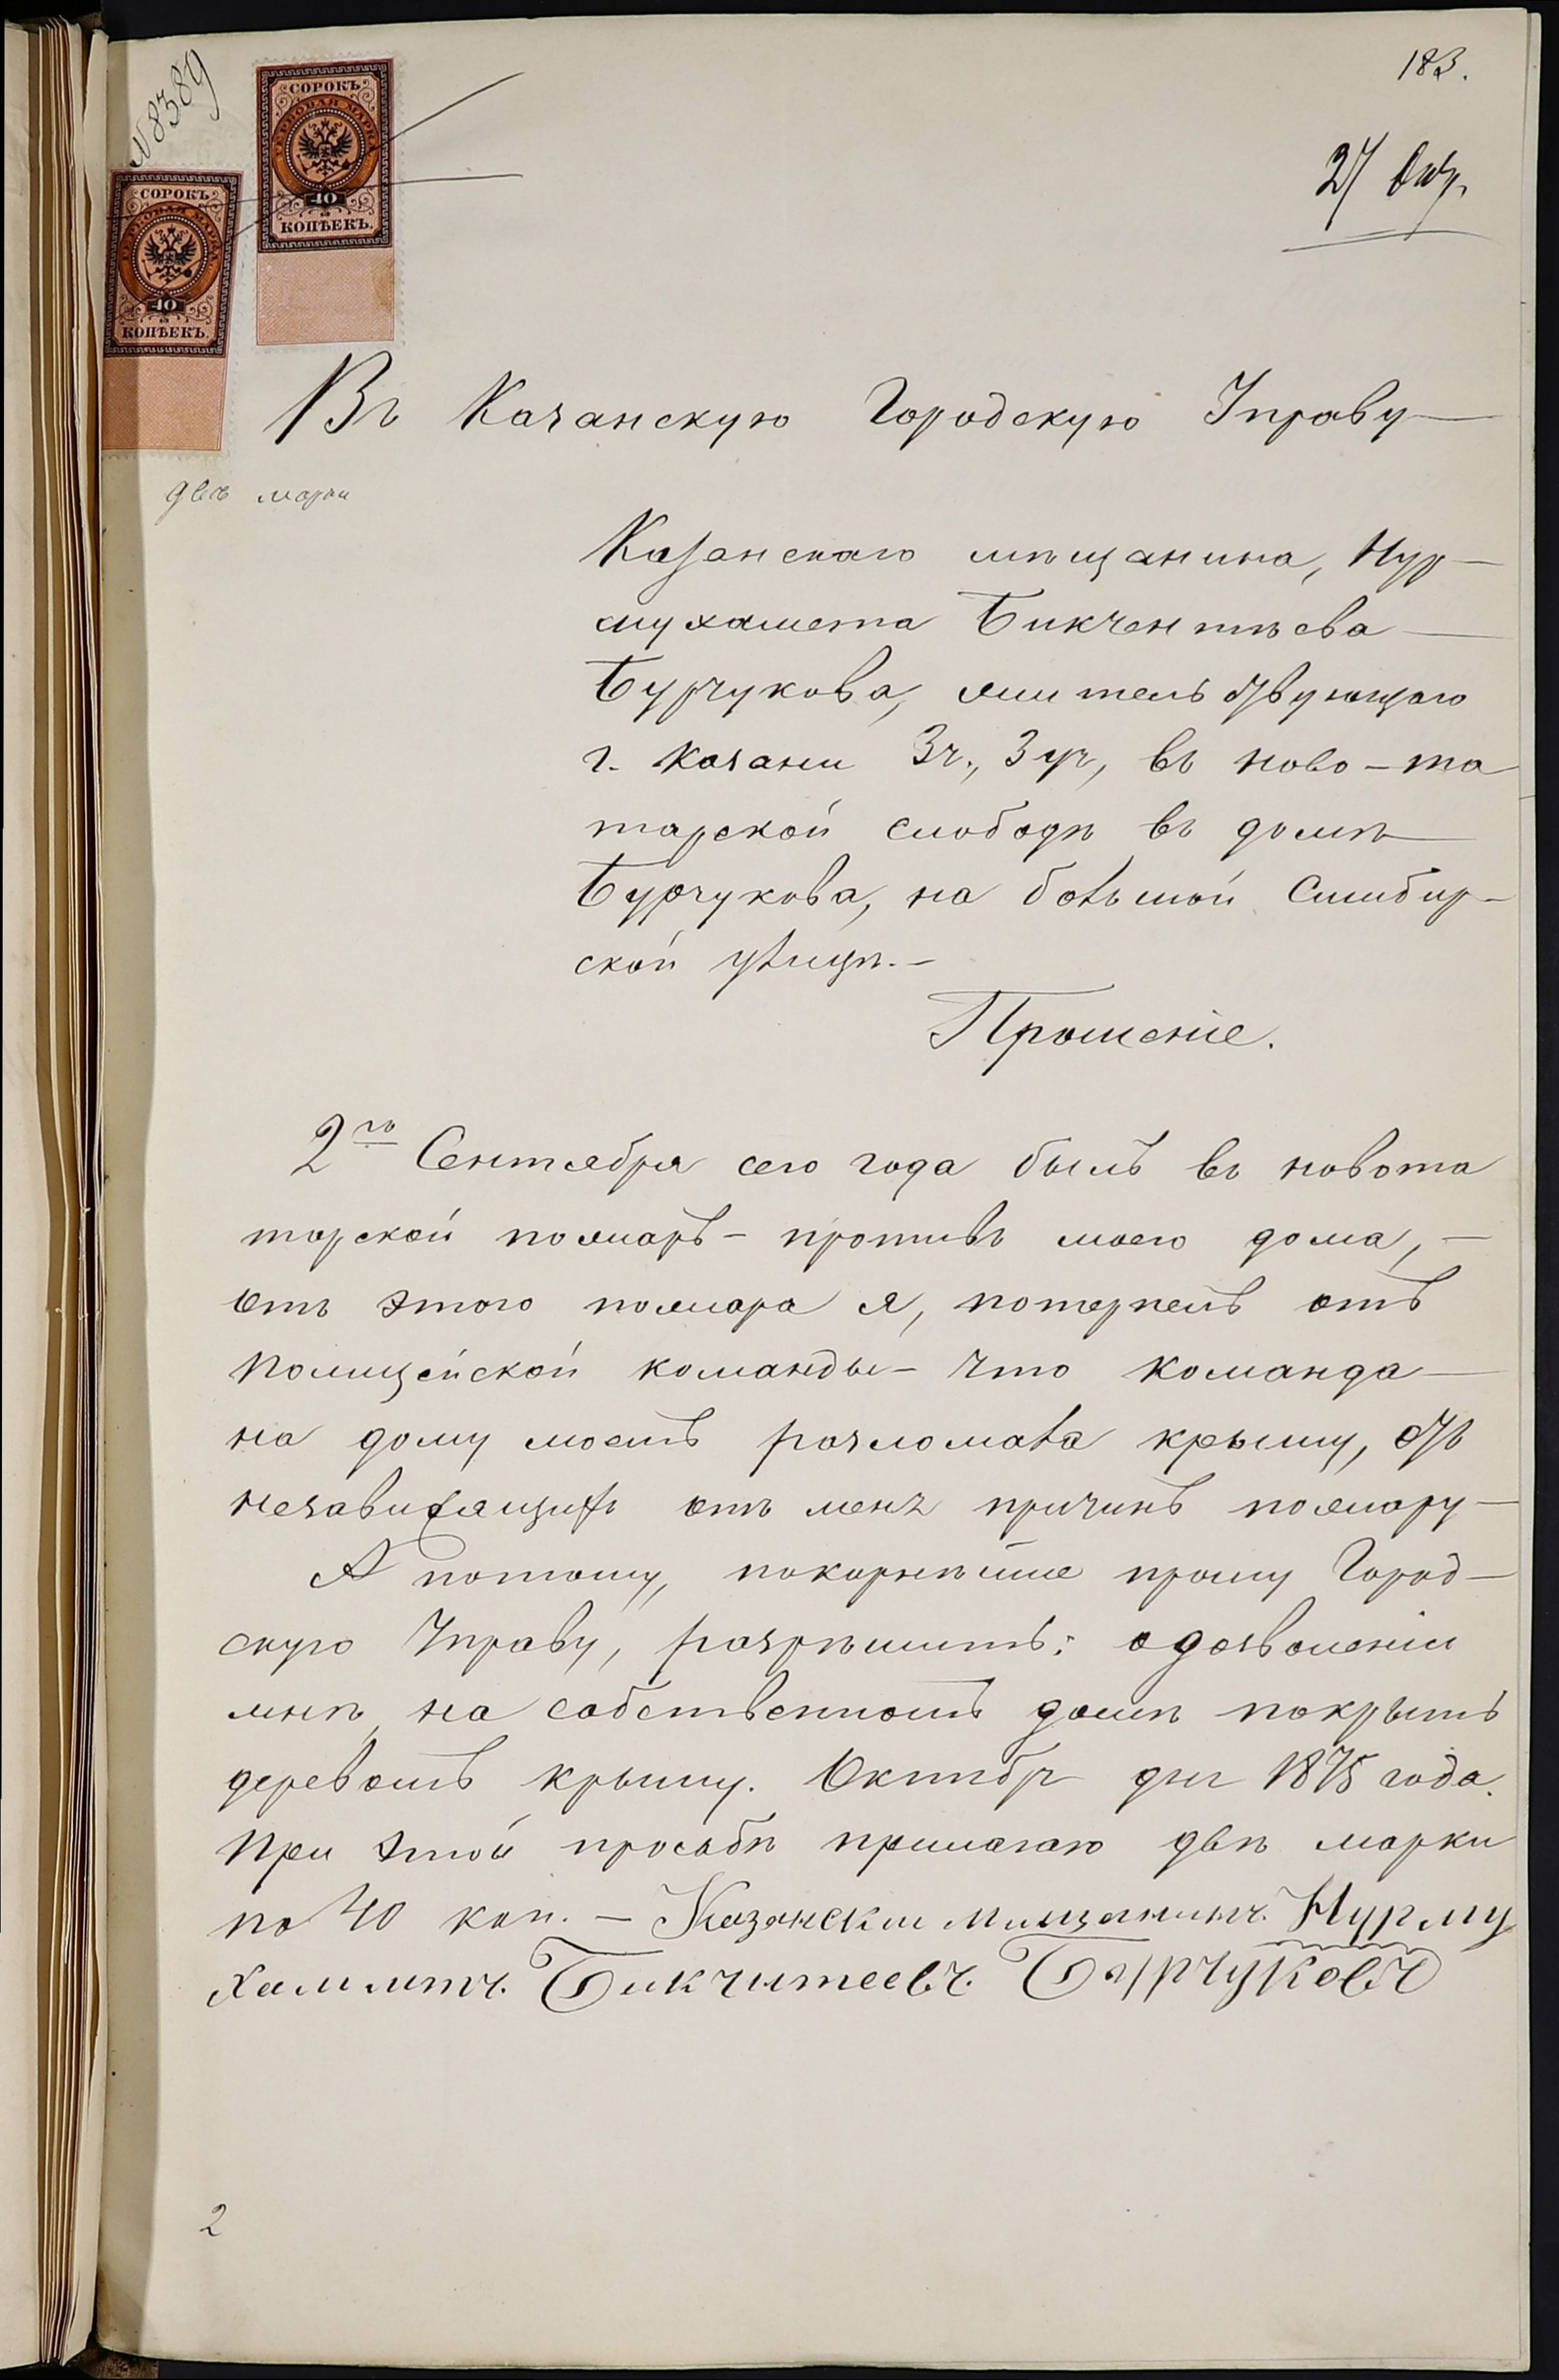 183.
27 Окт.
N 8389
СОРОКЪ
ГЕРБОВАЯ МАРКА
40
КОПѢЕКЪ.
СОРОКЪ
ГЕРБОВАЯ МАРКА
40
КОПѢЕКЪ.
Въ Казанскую Городскую Управу
двѣ марки
Казанскаго мѣщанина, Нур-
мухамета Бикчентѣева
Бурчукова, жительствующаго
г. Казани 3 ч., 3 уч, въ ново-та
тарской слободѣ въ домѣ
Бурчукова, на большой Симбир-
ской улицѣ.-
Прошеніе.
2го Сентября сего года былъ въ новота
тарской пожаръ - противъ моего дома, -
отъ этого пожара я, потерпелъ отъ
полицейской команды - что команда
на дому моемъ разломала крышу, отъ
независящихъ отъ меня причинъ пожару -
А потому, покорнѣйше прошу Город-
скую Управу, разрѣшить: о дозволеніи
мнѣ на собственномъ домѣ покрыть
деревомъ крышу. Октября дня 1875 года.
При этой просьбѣ прилагаю двѣ марки
по 40 коп. - Казански мищанинъ Нурму
хамметъ Бикчитеевъ Бурчуковъ
2